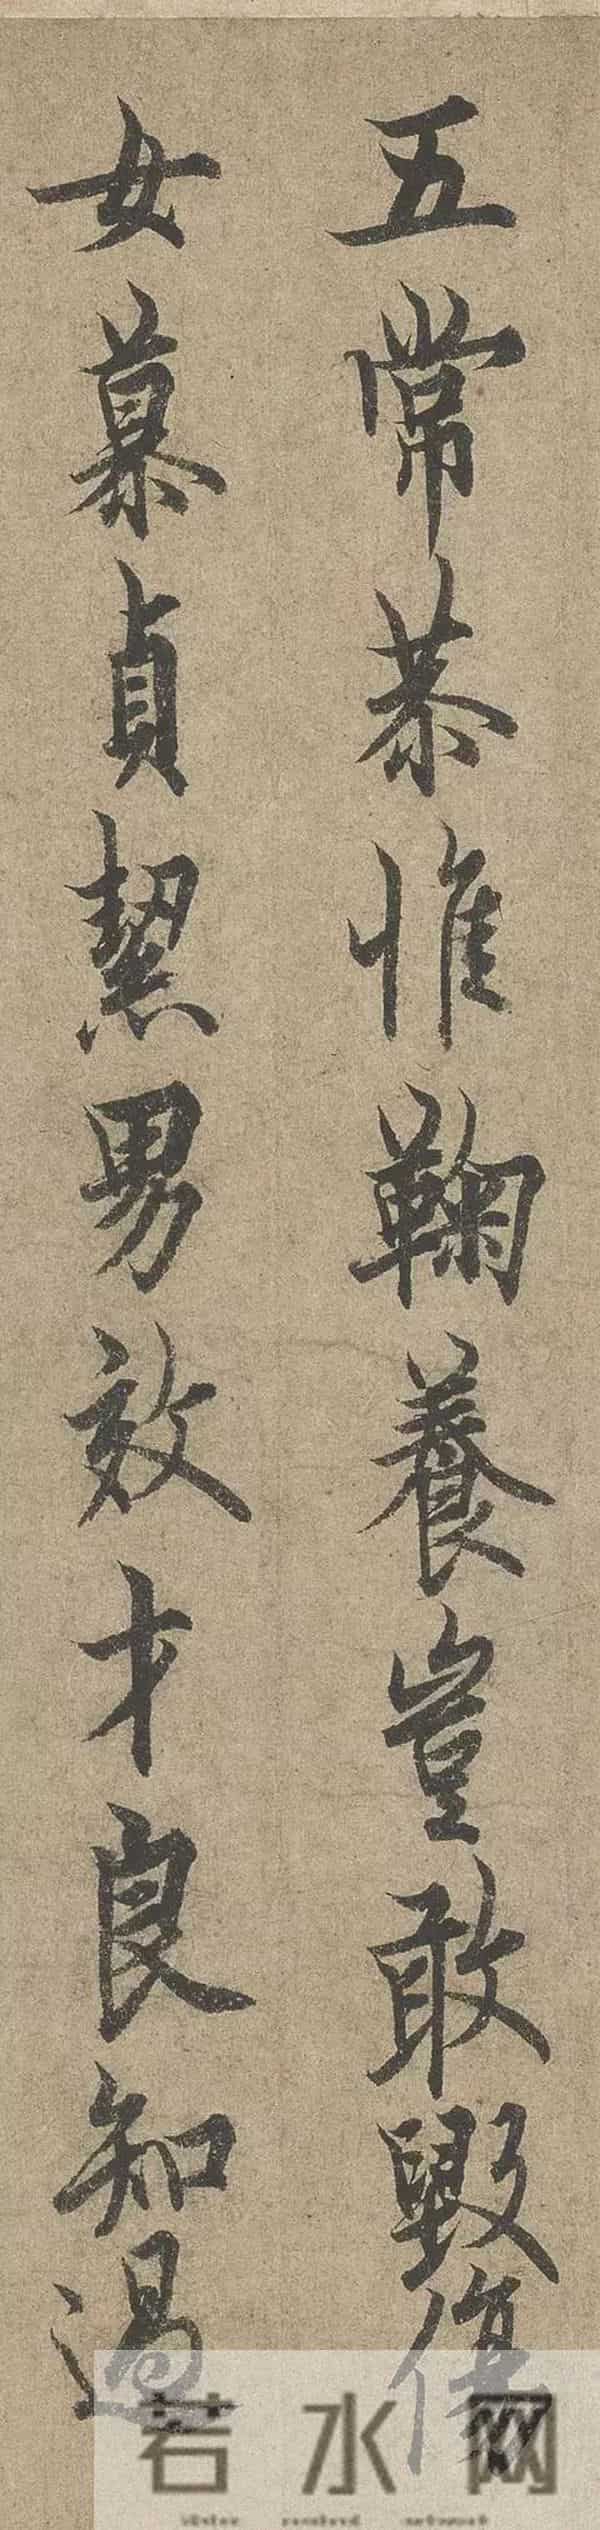 五常恭惟鞠養豈敢毀傷
女慕貞絜男效才良知過
若水网